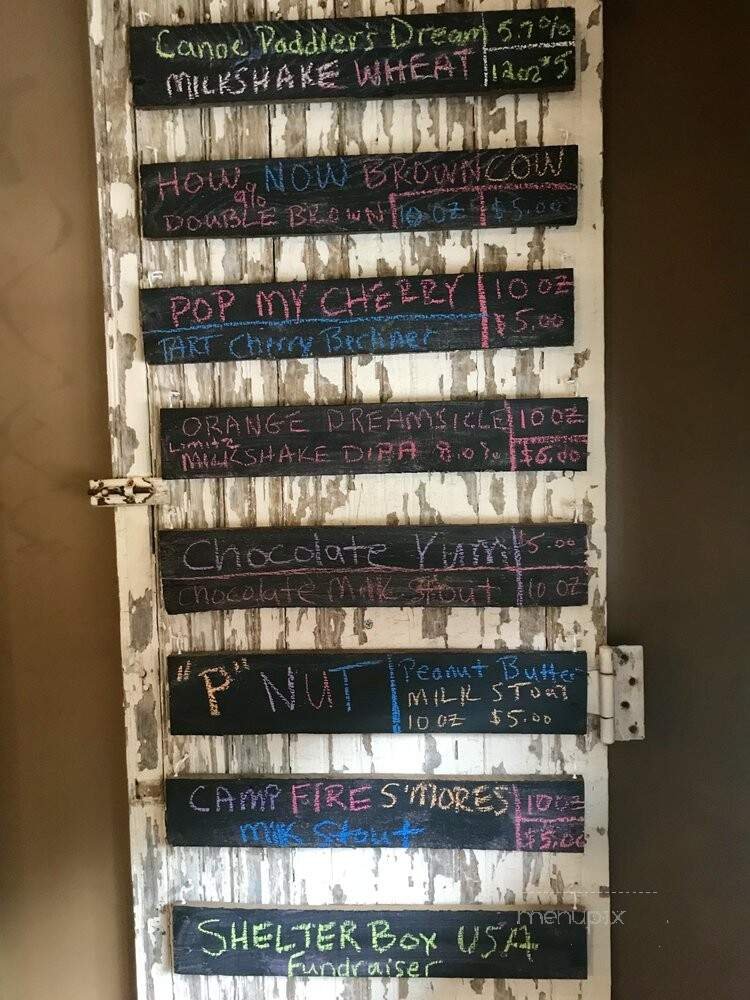 Canoe Paddler's Dream 5.7%
MILKSHAKE WHEAT 12oz $5
HOW NOW BROWN COW
9%
DOUBLE BROWN 10 OZ $5.00
POP MY CHERRY 10 OZ
TART Cherry Berliner $5.00
ORANGE DREAMSICLE 10 OZ
Limit 2
MILKSHAKE DIPA 8.0% $6.00
Chocolate Yum $5.00
Chocolate Milk Stout 10 OZ
"P" NUT Peanut Butter
MILK STOUT
10 OZ $5.00
CAMPFIRE S'MORES 10 OZ
Milk Stout $5.00
SHELTER Box USA
Fundraiser
menupix